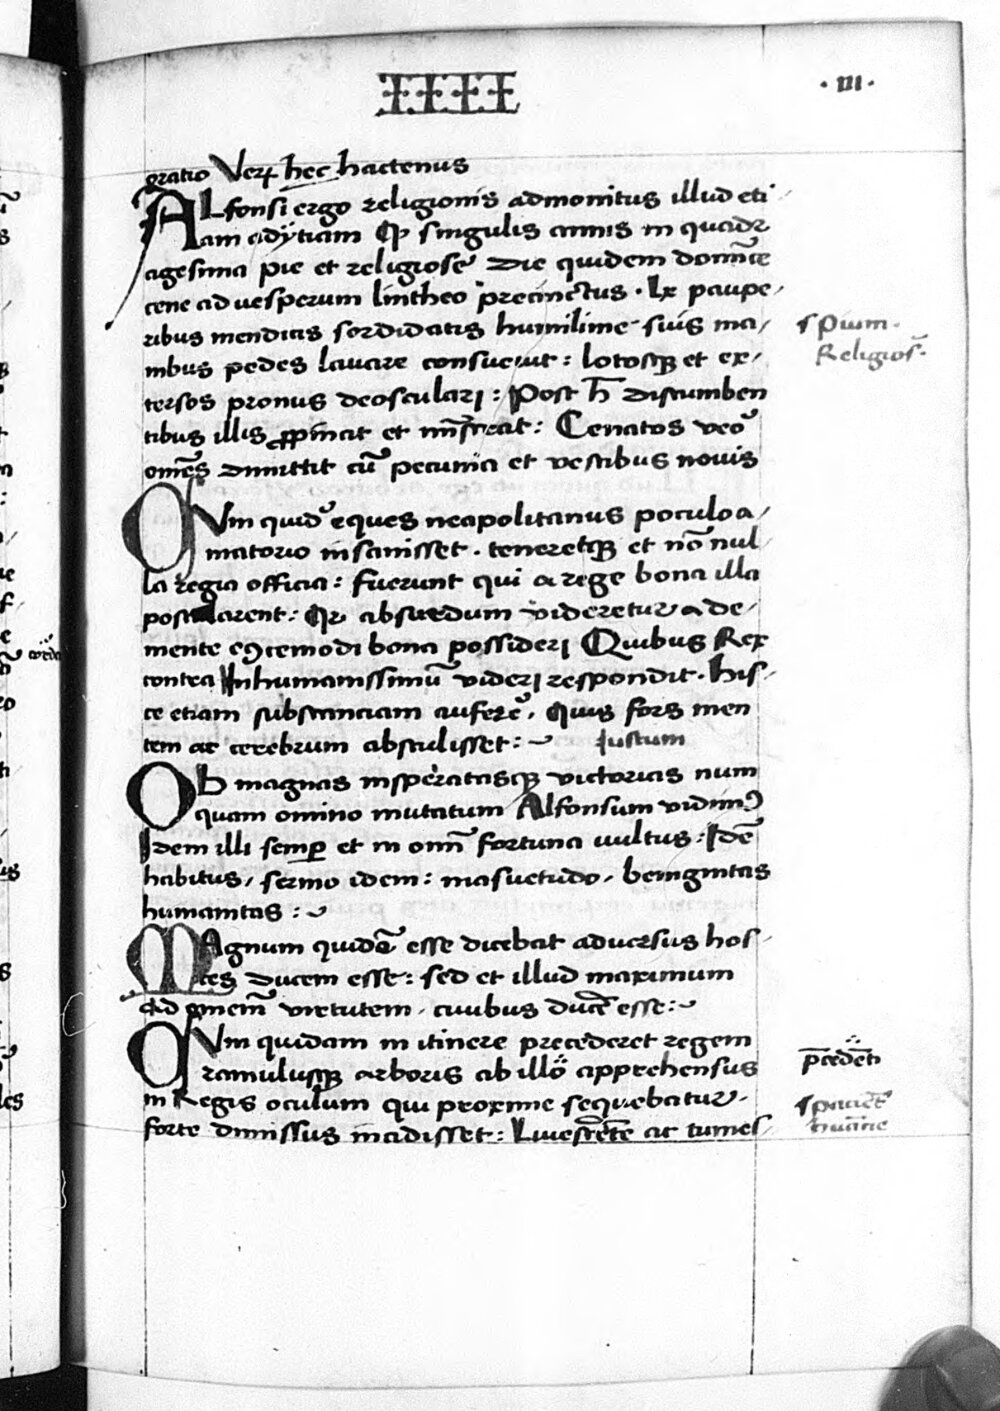 · III ·
oratio Verũ hec hactenus
ALfonsi ergo religionis admonitus illud eti
am adijciam Qͥ singulis annis in quadr
agesima pie et religiose Die quidem dominĩce
cene ad vesperum lintheo precinctus · Lx paupe/
ribus mendicis sordidatis humilime suis ma/
nibus pedes lavare consuevit : lotosqꝫ et ex/
tersos pronus deosculari : Post h̄ discumben
tibus illis ꝓpinat et minĩstrat : Cenatos veõ
omẽs dimittit cũ pecunia et vestibus novis
QVm quidẽ eques neapolitanus poculo a/
matorio insanisset · tenereturqꝫ et nõ nul
la regia officia : fuerunt qui a rege bona illa
postularent : Qr absurdum videretur a de/
mente eꝯcemodi bona possideri Quibus Rex
contra Inhumanissimũ videri respondit · his/
ce etiam substanciam auferẽ, Quis fors men
tem ac cerebrum abstulisset :~
Justum
OB magnas insperatasqꝫ victorias num
quam omino mutatum Alfonsum vidimꝰ
Idem illi semꝑ et in omñ fortuna vultus : Idẽ
habitus, sermo idem : masuetudo, benignitas
humanitas :~
MAgnum quidẽ esse dicebat adversus hos/
tes ducem esse : sed et illud maximum
ad omnem̃ virtutem, civibus ducẽ esse :~
QVm quidam in itinere precederet regem
ramulusqꝫ arboris ab illo apprehensus
in Regis oculum qui proxime sequebatur ·
forte dimissus incidisset : Livescẽte ac tumes/
Pium ·
Religios̃ ·
p̄cedẽti
pacieñt
humane